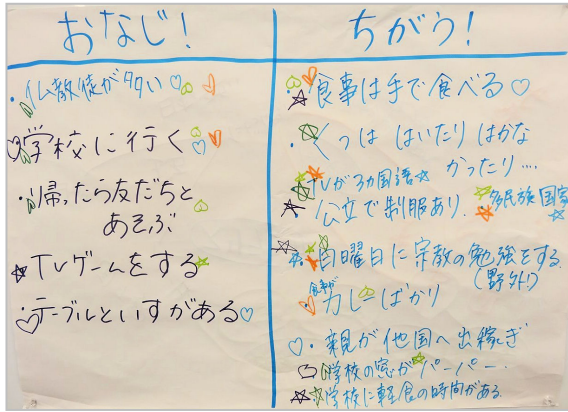 おなじ!
・仏教徒が多い
学校に行く
・帰ったら友だちと
あそぶ
・TVゲームをする
・テーブルといすがある
ちがう!
・食事は手で食べる
・くつは はいたり はかな
かったり….
・TVが3カ国語
・多民族国家
・公立で制服あり.
・日曜日に宗教の勉強をする.
(野外)
食事が
カレーばかり
・親が他国へ出稼ぎ
学校の窓がパーパー.
学校に軽食の時間がある.